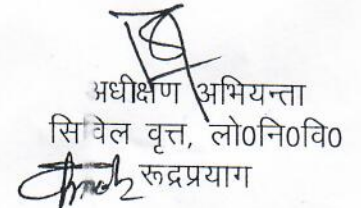 अधीक्षण अभियन्ता
सिविल वृत्त, लो०नि०वि०
रूद्रप्रयाग